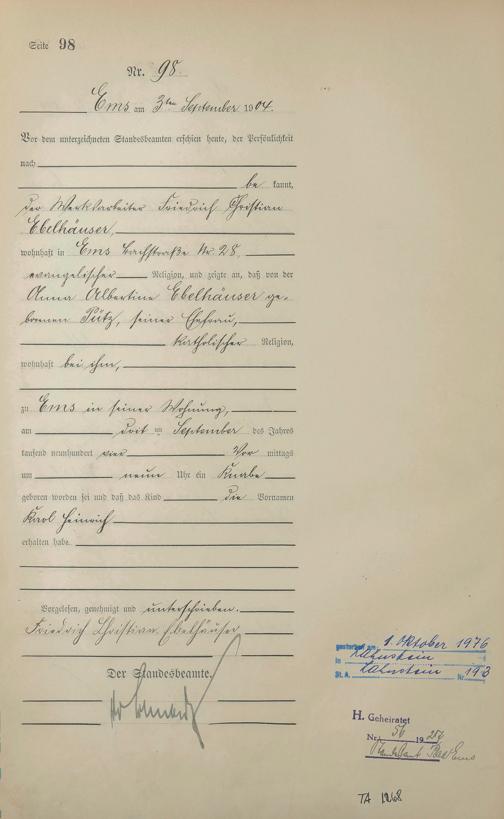 Seite 98
Nr. 98.
Ems am 3ten September 1904.
Vor dem unterzeichneten Standesbeamten erschien heute, der Persönlichkeit
nach
be kannt,
der Werkarbeiter Friedrich Christian
Ebelhäuser,
wohnhaft in Ems Bachstraße Nr 28,
evangelischer Religion, und zeigte an, daß von der
Anna Albertine Ebelhäuser ge-
borenen Pütz, seiner Ehefrau,
katholischer Religion,
wohnhaft bei ihm,
zu Ems in seiner Wohnung,
am September des Jahres
tausend neunhundert vier Vor mittags
um neun Uhr ein Knabe
geboren worden sei und daß das Kind die Vornamen
Karl Heinrich
erhalten habe.
Vorgelesen, genehmigt und unterschrieben.
Friedrich Christian Ebelhäuser
Der Standesbeamte.
gestorben am 1. Oktober 1976
in Lahnstein
St. A. Lahnstein Nr. 193
H. Geheiratet
Nr. 56 19
Standesamt Bad Ems
TA